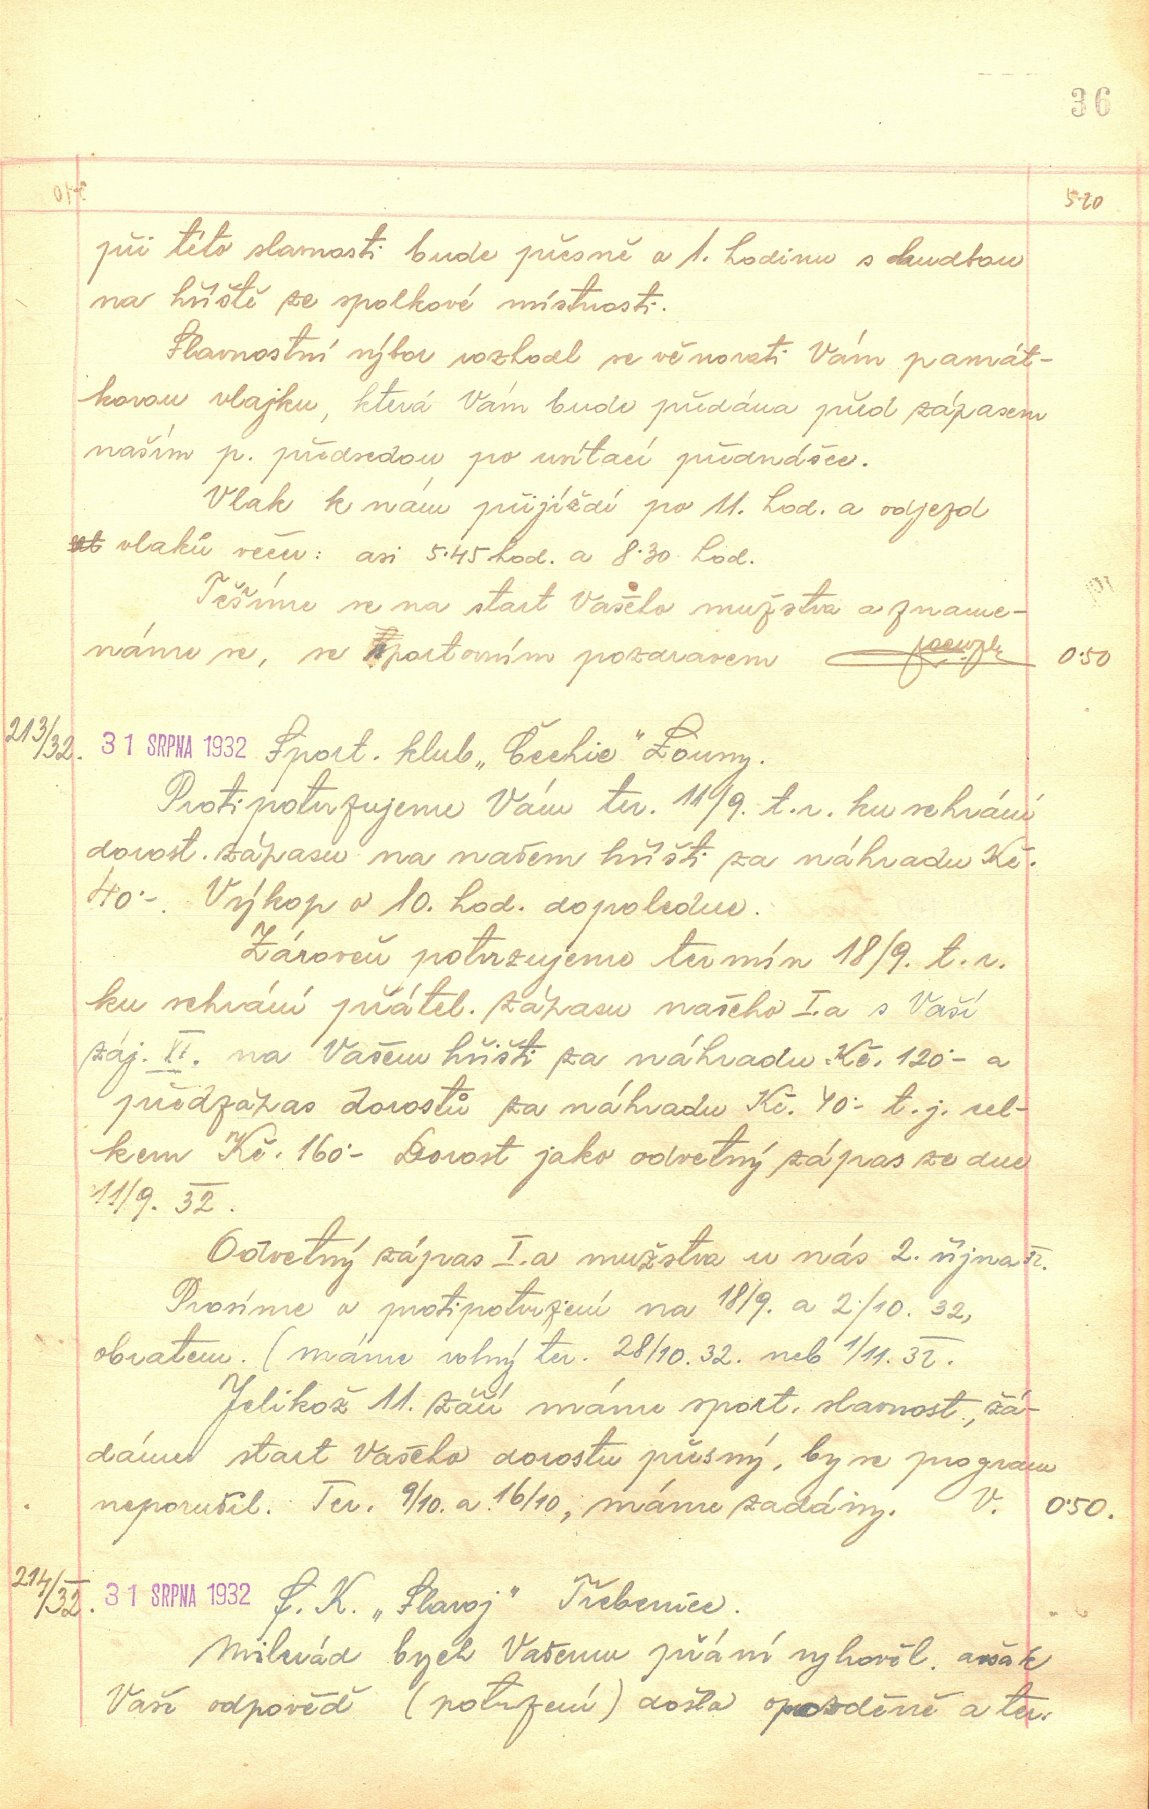 36
5·20
při této slavnosti bude přesně o 1. hodinu s hudbou
na hřiště ze spolkové místnosti.
Slavnostní výbor rozhodl se věnovati Vám památ-
kovou vlajku, která Vám bude předána před zápasem
naším p. předsedou po uvítací přednášce.
Vlak k nám přijíždí po 11. hod. a odjezd
vlaků večer: asi 5·45 hod. a 8·30 hod.
Těšíme se na start Vašeho mužstva a zname-
náme se, se sportovním pozdravem
0·50
213/32. 31 SRPNA 1932 Sport. klub „Čechie" Louny.
Protipotvrzujeme Vám ter. 11/9. t.r. ku sehrání
dorost. zápasu na našem hřišti za náhradu Kč.
40·-. Výkop o 10. hod. dopoledne.
Zároveň potvrzujeme termín 18/9. t.r.
ku sehrání přátel. zápasu našeho I.a s Vaší
záj. XI. na Vašem hřišti za náhradu Kč. 120·- a
předzápas dorostů za náhradu Kč. 40·- t.j. cel-
kem Kč. 160·- Dorost jako odvetný zápas ze dne
11/9. 32.
Odvetný zápas I.a mužstva u nás 2. října 32.
Prosíme o protipotvrzení na 18/9. a 2/10. 32,
obratem. (máme volný ter. 28/10. 32. neb 1/11. 32.
Jelikož 11. září máme sport. slavnost, žá-
dáme start Vašeho dorostu přesný, by se program
neporušil. Ter. 9/10. a 16/10, máme zadány. V. 0·50.
214/32. 31 SRPNA 1932 S. K. „Slavoj" Třebenice.
Milerád bych Vašemu přání vyhověl. avšak
Vaše odpovědě (potvrzení) došla opozděně a ter.